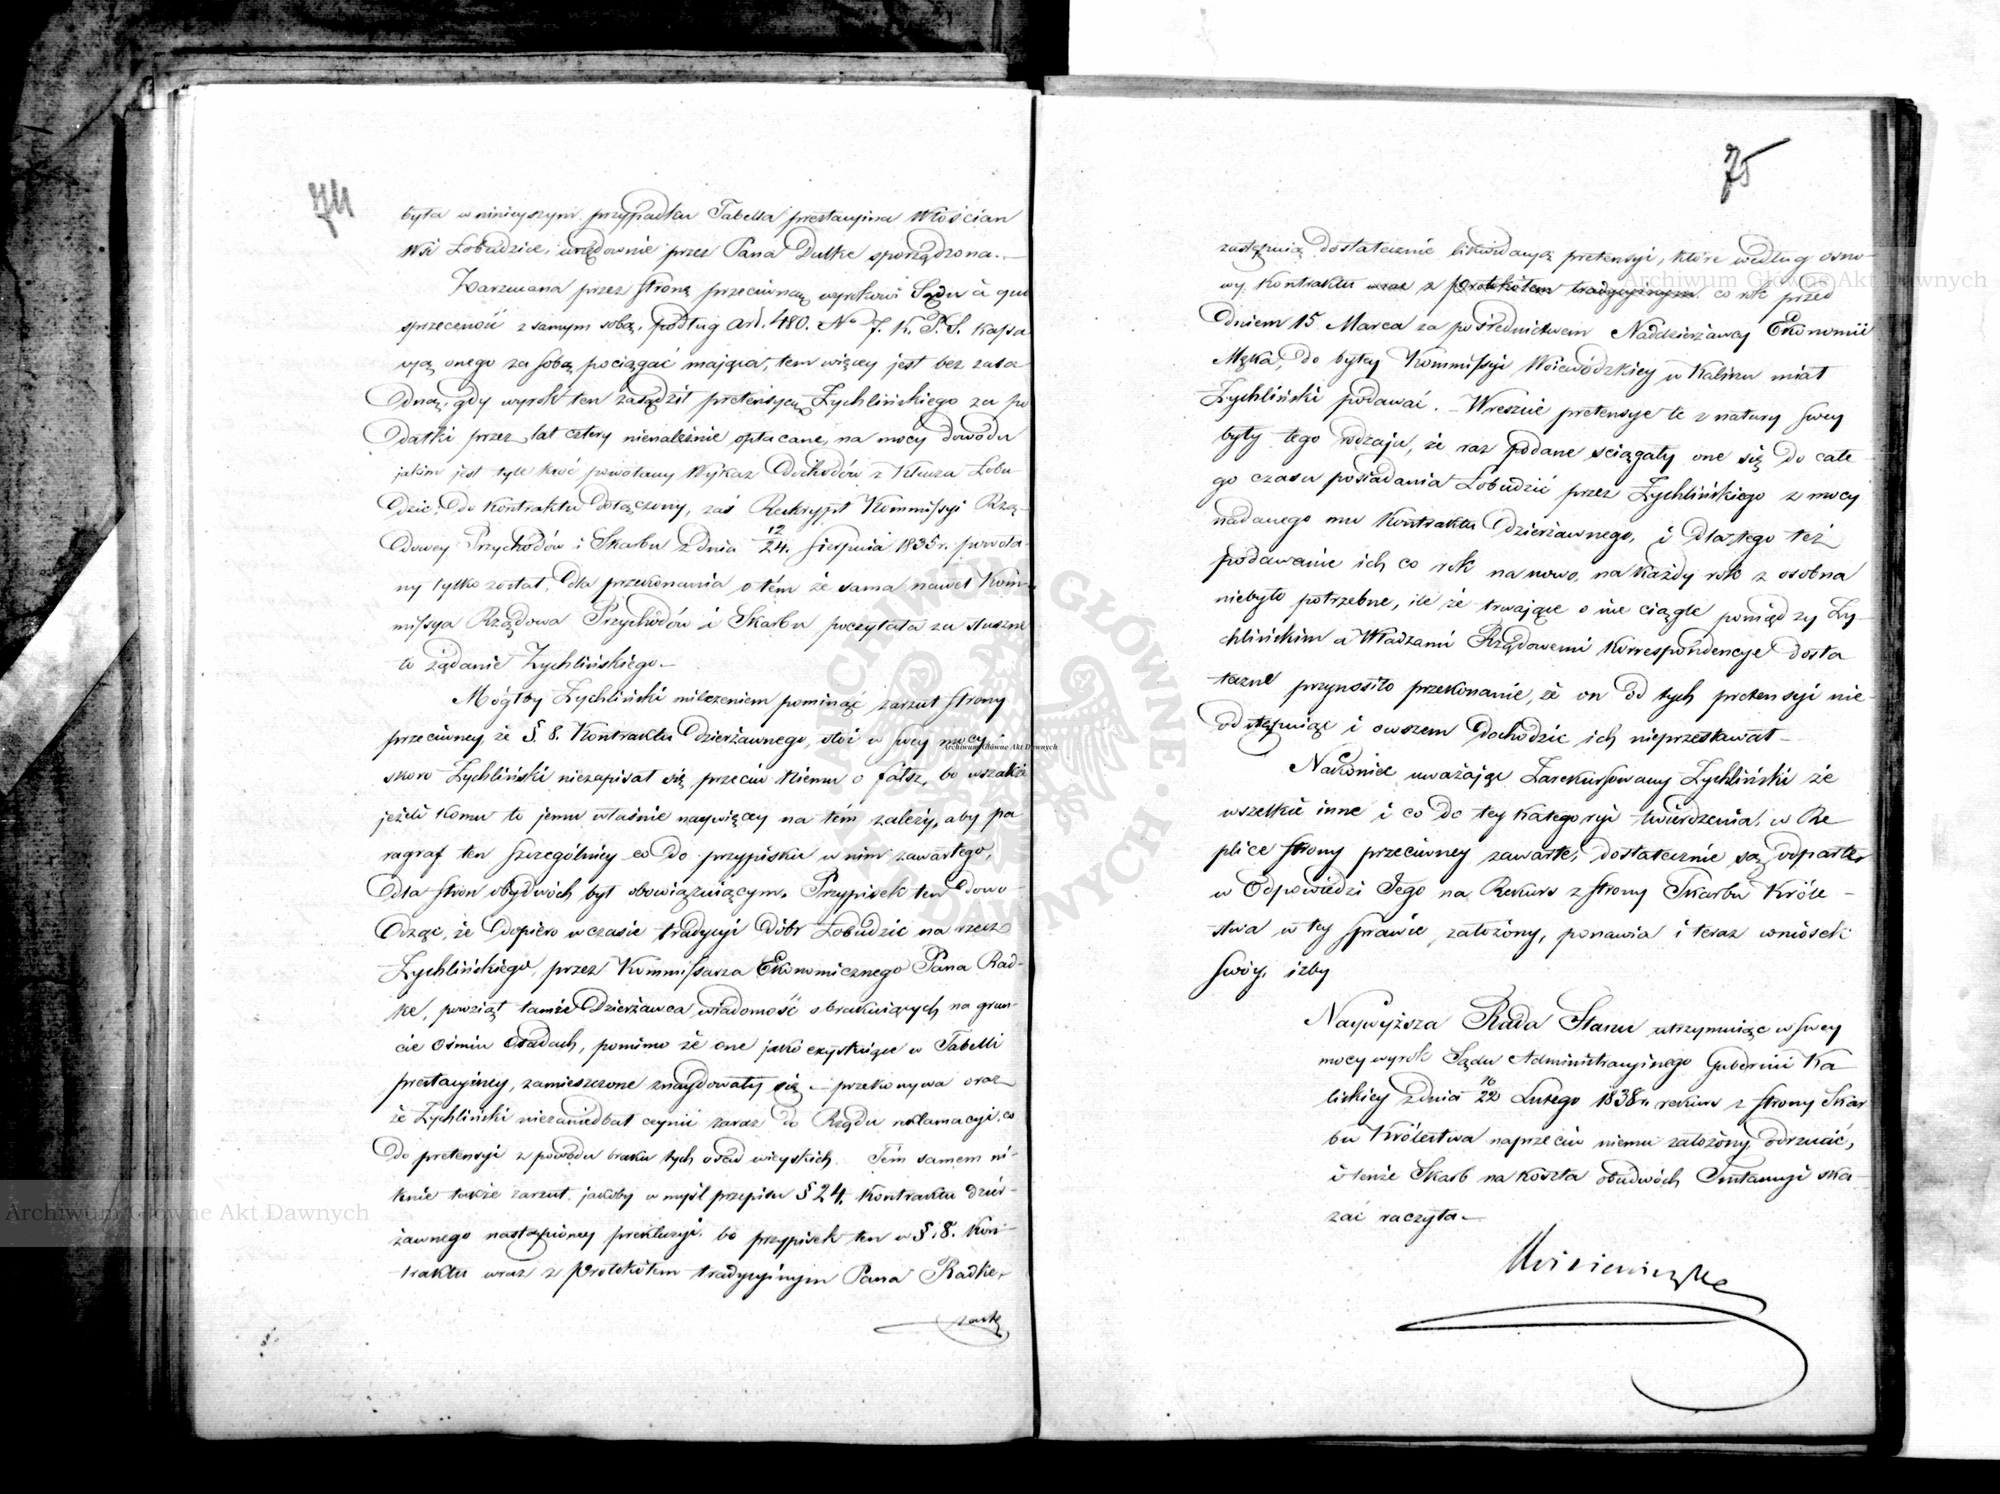 74
była w ninieyszym przypadku Tabella prestacyina Włościan
Wsi Łobudzice, urzędownie przez Pana Dutke sporządzona.—
Zarzucana przez stronę przeciwną wyrokowi Sądu à quo
sprzeczność z samym sobą, podług Art. 480. No 7. K. P. S. Kassa
cyą onego za sobą pociągać mająca, tem więcey jest bez zasa
dną, gdy wyrok ten zasądził pretensyą Zychlińskiego za po
datki przez lat cztery nienależnie opłacane, na mocy dowodu
jakim jest tyle kroć powołany Wykaz Dochodów z Klucza Łobu
dzic, do Kontraktu dołączony, zaś Reskrypt Kommissyi Rzą-
dowey Przychodów i Skarbu z dnia 12/24. Sierpnia 1835 r. powoła-
ny tylko został, dla przekonania o tém że sama nawet Kom-
missya Rządowa Przychodów i Skarbu poczytała za słuszne
to żądanie Zychlińskiego.—
Mógłby Zychliński milczeniem pominąć zarzut strony
przeciwney, że §. 8. Kontraktu Dzierżawnego, stoi w swey mocy,
skoro Zychliński niezapisał się przeciw niemu o fałsz, bo wszakże
jeżeli komu to jemu właśnie naywięcey na tém zależy, aby pa
ragraf ten szczególniey co do przypisku w nim zawartego,
dla stron obydwóch był obowiązuiącym. Przypisek ten dowo-
dząc, że dopiéro w czasie tradycyi dóbr Łobudzic na rzecz
Zychlińskiego, przez Kommissarza Ekonomicznego Pana Rad-
ke, powziął tamże Dzierżawca wiadomość o brakuiących na grun-
cie ośmiu osadach, pomimo że one jako exystuiące w Tabelli
prestacyiney, zamieszczone znaydowały się — przekonywa oraz
że Zychliński niezaniedbał czynić zaraz do Rządu reklamacyi, co
do pretensyi z powodu braku tych osad wieyskich. Tém samem ni-
knie także zarzut, jakoby w myśl przepisu § 24. Kontraktu dzier-
żawnego nastąpioney prekluzyi, bo przypisek ten w §. 8. Kon-
traktu wraz z Protokółem tradycyinym Pana Radke,
zastę
75
zastępuią dostatecznie likwidacyą pretensyi, które według osno-
wy Kontraktu wraz z Protokółem tradycyinym co rok przed
dniem 15. Marca za pośrednictwem Naddzierżawcy Ekonomii
Męka, do byłey Kommissyi Woiewódzkiey w Kaliszu miał
Zychliński podawać. — Wreszcie pretensye te z natury swey
były tego rodzaju, że raz podane sciągały one się do całe-
go czasu posiadania Łobudzic przez Zychlińskiego z mocy
nadanego mu Kontraktu Dzierżawnego, i dlatego też
podawanie ich co rok na nowo, na każdy rok z osobna
niebyło potrzebne, ile że trwające o nie ciągle pomiędzy Zy-
chlińskim a Władzami Rządowemi Korrespondencye dosta
teczne przynosiło przekonanie, że on od tych pretensyi nie-
odstępuiąc i owszem dochodzić ich nieprzestawał.—
Nakoniec uważając Zarekursowany Zychliński że
wszelkie inne i co do tey kategoryi twierdzenia, w Re
plice strony przeciwney zawarte, dostatecznie są odparte
w Odpowiedzi Jego na Rekurs z strony Skarbu Króle-
stwa w tey sprawie założony, ponawia i teraz wniosek
swóy, iżby
Naywyższa Rada Stanu utrzymuiąc w swey
mocy wyrok Sądu Administracyinego Gubernii Ka
liskiey z dnia 10/22 Lutego 1838 r. rekurs z strony Skar
bu Królestwa naprzeciw niemu założony odrzucić,
i tenże Skarb na koszta obudwóch Instancyi ska-
zać raczyła.—
Archiwum Główne Akt Dawnych
Archiwum Główne Akt Dawnych
Archiwum Główne Akt Dawnych
ARCHIWUM GŁÓWNE AKT DAWNYCH